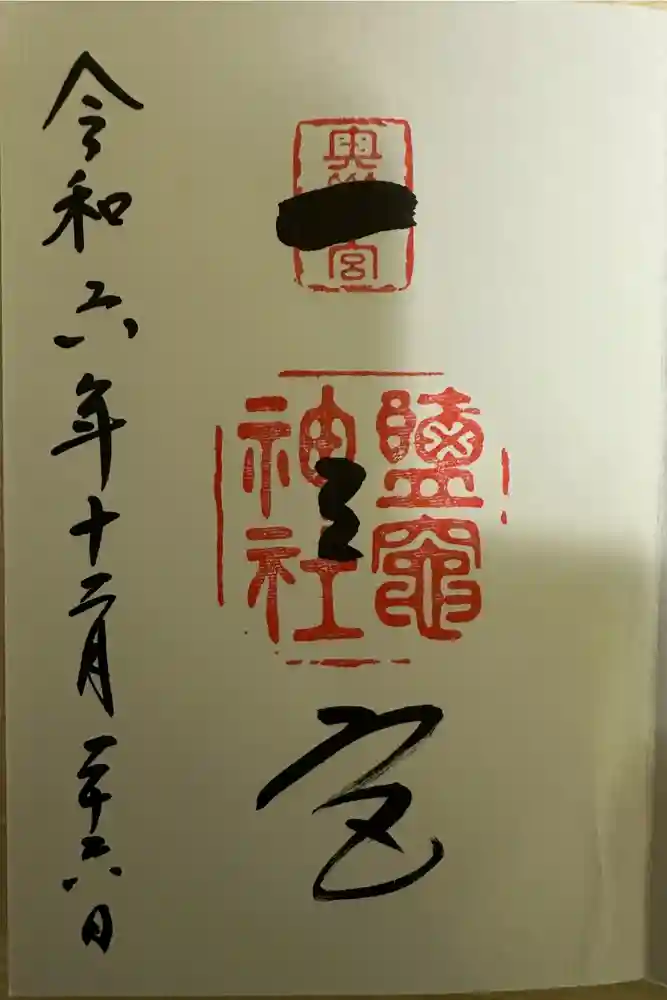 奥州宮
一之宮
鹽竈
神社
令和六年十二月二十六日